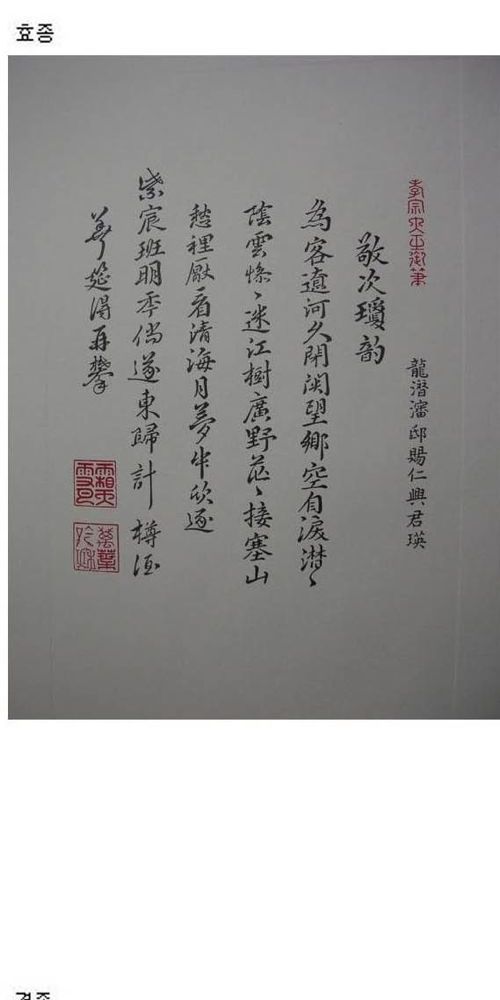 효종
孝宗大王御筆
龍潛瀋邸賜仁興君瑛
敬次瓊韵
為客遼河久閉関望鄉空有淚潸〻
陰雲慘〻迷江樹廣野茫〻接塞山
愁裡厭看清海月夢中欣逐
紫宸班明季倘遂東歸計樽酒
華筵得再攀